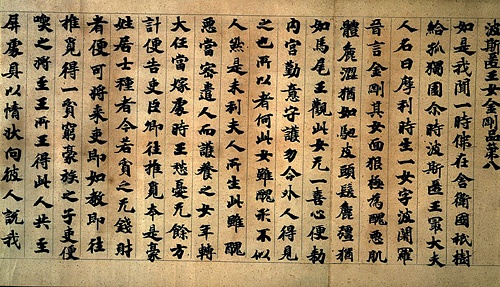 波斯匿王女金剛品第八
如是我聞一時佛在舍衛國祇樹
給孤獨園尒時波斯匿王㝡大夫
人名曰摩利時生一女字波闍羅
晉言金剛其女面狠極為醜惡肌
體麁澀猶如駝皮頭髮麁彊猶
如馬尾王觀此女无一喜心便勅
內宮勤意守護勿令外人得見
之也所以者何此女雖醜形不似
人然是末利夫人所生此雖醜
惡當密遣人而護養之女年轉
大任當嫁處時王愁憂无餘方
計便告吏臣卿往推覓本是豪
姓居士種者今若貧乏无錢財
者便可將來吏即如教即往
推覓得一貧窮豪族之子吏便
喚之將至王所王得此人共至
屏處具以情狀向彼人說我